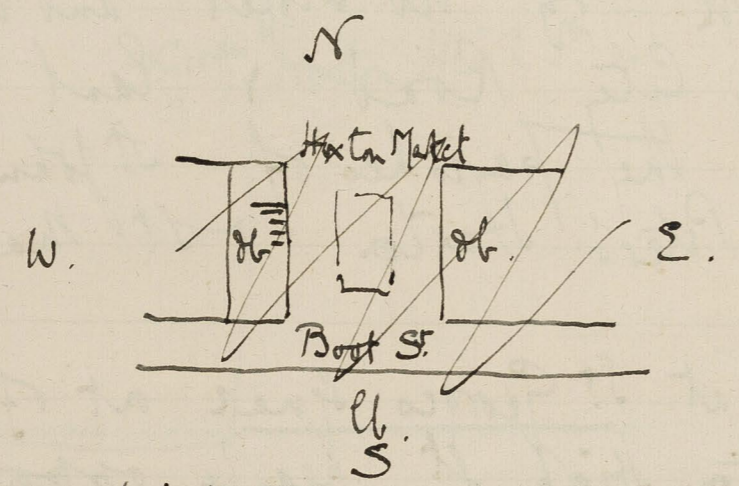 N
Hoxton Market
W. db db. E.
Boot St.
S.